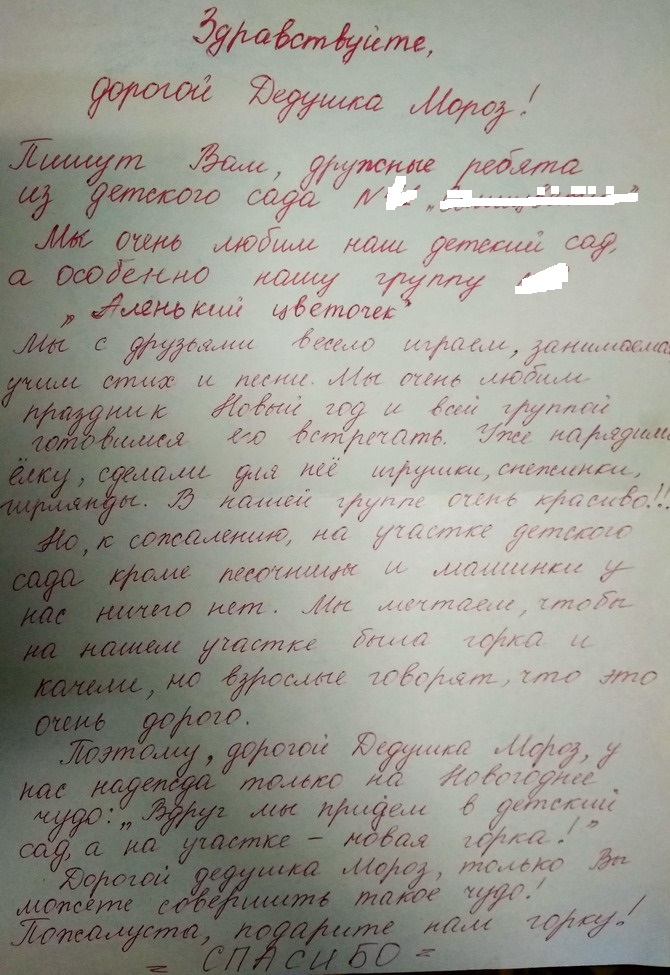 Здравствуйте,
дорогой Дедушка Мороз!
Пишут Вам, дружные ребята
из детского сада №
Мы очень любим наш детский сад,
а особенно нашу группу
„Аленький цветочек"
Мы с друзьями весело играем, занимаемся
учим стих и песни. Мы очень любим
праздник Новый год и всей группой
готовимся его встречать. Уже нарядили
ёлку, сделали для неё игрушки, снежинки,
гирлянды. В нашей группе очень красиво!!!
Но, к сожалению, на участке детского
сада кроме песочницы и машинки у
нас ничего нет. Мы мечтаем, чтобы
на нашем участке была горка и
качели, но взрослые говорят, что это
очень дорого.
Поэтому, дорогой Дедушка Мороз, у
нас надежда только на Новогоднее
чудо: „Вдруг мы придем в детский
сад, а на участке – новая горка!"
Дорогой дедушка Мороз, только Вы
можете совершить такое чудо!
Пожалуста, подарите нам горку!
= СПАСИБО =